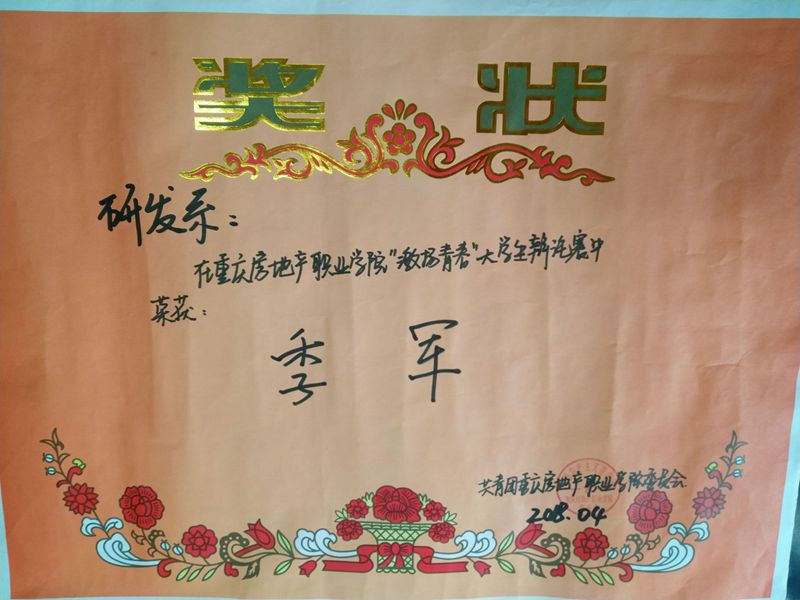 奖 状
研发系：
在重庆房地产职业学院"激扬青春"大学生辩论赛中
荣获：
季 军
共青团重庆房地产职业学院委员会
2018.04